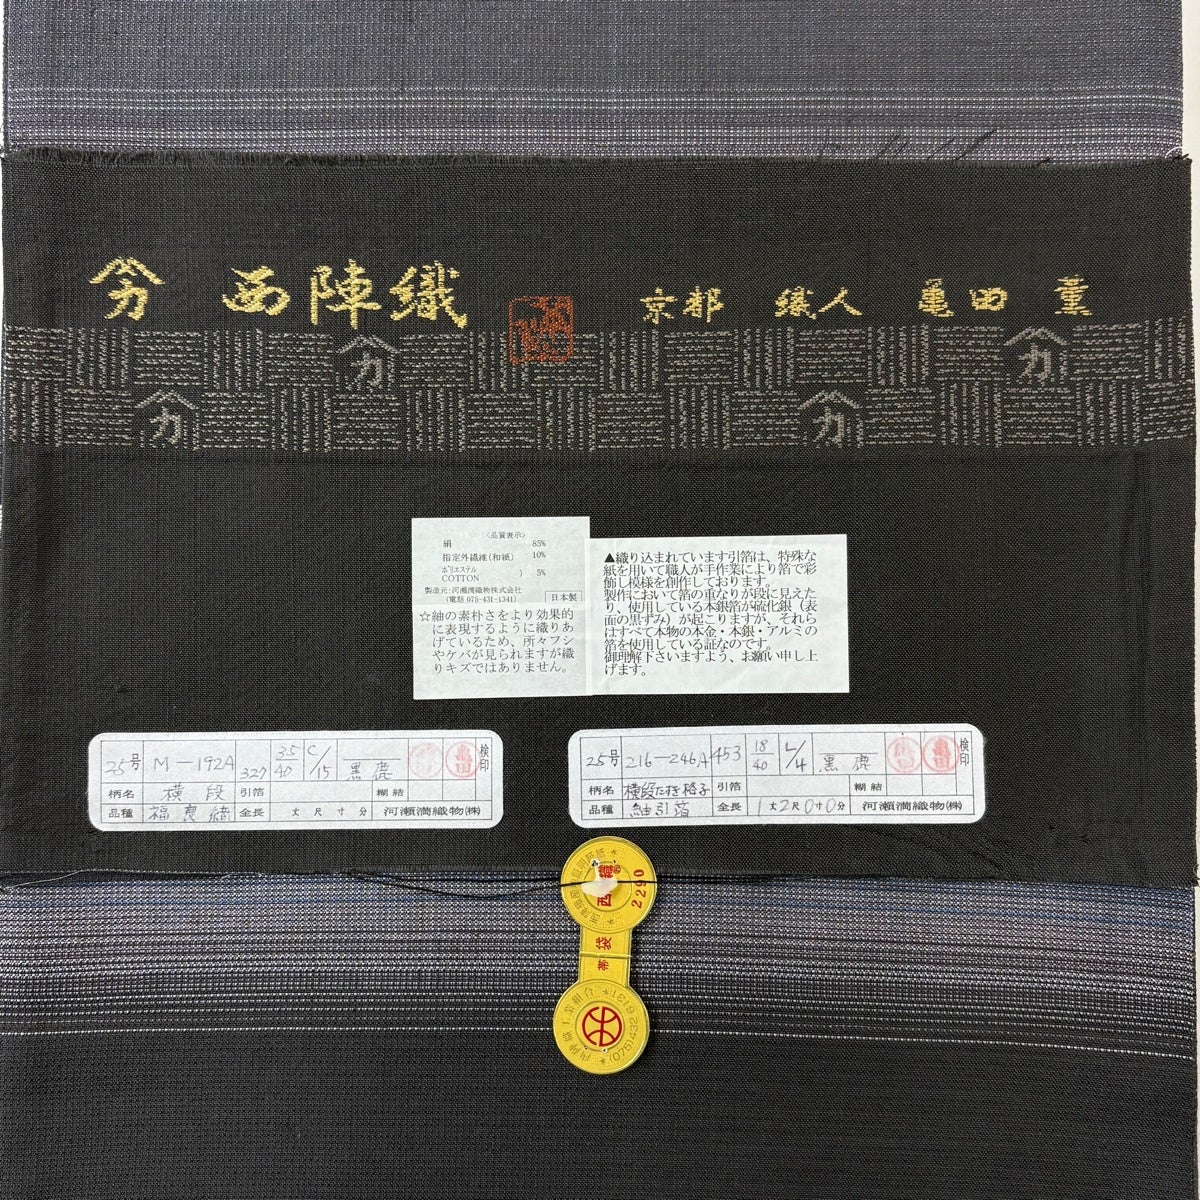 西陣織
京都 織人 亀田 薫
カ
カ
カ
カ
〈品質表示〉
絹 85%
指定外繊維(和紙) 10%
ポリエステル
COTTON ) 5%
製造元:河瀬満織物株式会社
(電話 075-431-1341) 日本製
☆紬の素朴さをより効果的
に表現するように織りあ
げているため、所々フシ
やケバが見られますが織
りキズではありません。
▲織り込まれています引箔は、特殊な
紙を用いて職人が手作業により箔で彩
飾し模様を創作しております。
製作において箔の重なりが段に見えた
り、使用している本銀箔が硫化銀(表
面の黒ずみ)が起こりますが、それら
はすべて本物の本金・本銀・アルミの
箔を使用している証なのです。
御理解下さいますよう、お願い申し上
げます。
25号 M-192A 327 35/40 C/15 黒鹿 検印
柄名 横段 引箔 糊結
品種 福良綺 全長 丈 尺 寸 分 河瀬満織物(株)
25号 216-246A 453 18/40 L/4 黒鹿 亀田 検印
柄名 横段たき格子 引箔 糊結
品種 紬引箔 全長 1丈2尺0寸0分 河瀬満織物(株)
西 織
2290
袋帯
(075)432-6131